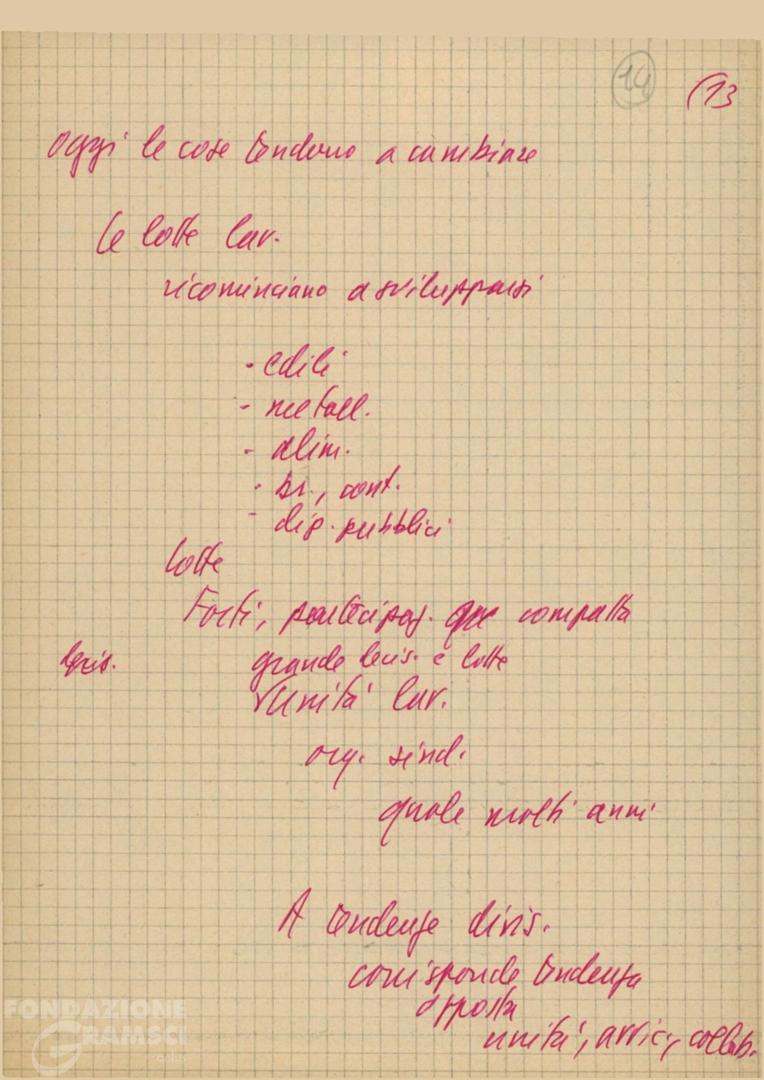 14 (13
Oggi le cose tendono a cambiare
Le lotte lav.
ricominciano a svilupparsi
- edili
- metall.
- alim.
- br., cont.
- dip. pubblici
lotte
Forti, partecipaz. compatta
grande decis. e lotte
Unità lav.
org. sind.
quale molti anni
A tendenze divis.
corrisponde tendenza
opposta
unità, avvic., collab.
FONDAZIONE
GRAMSCI